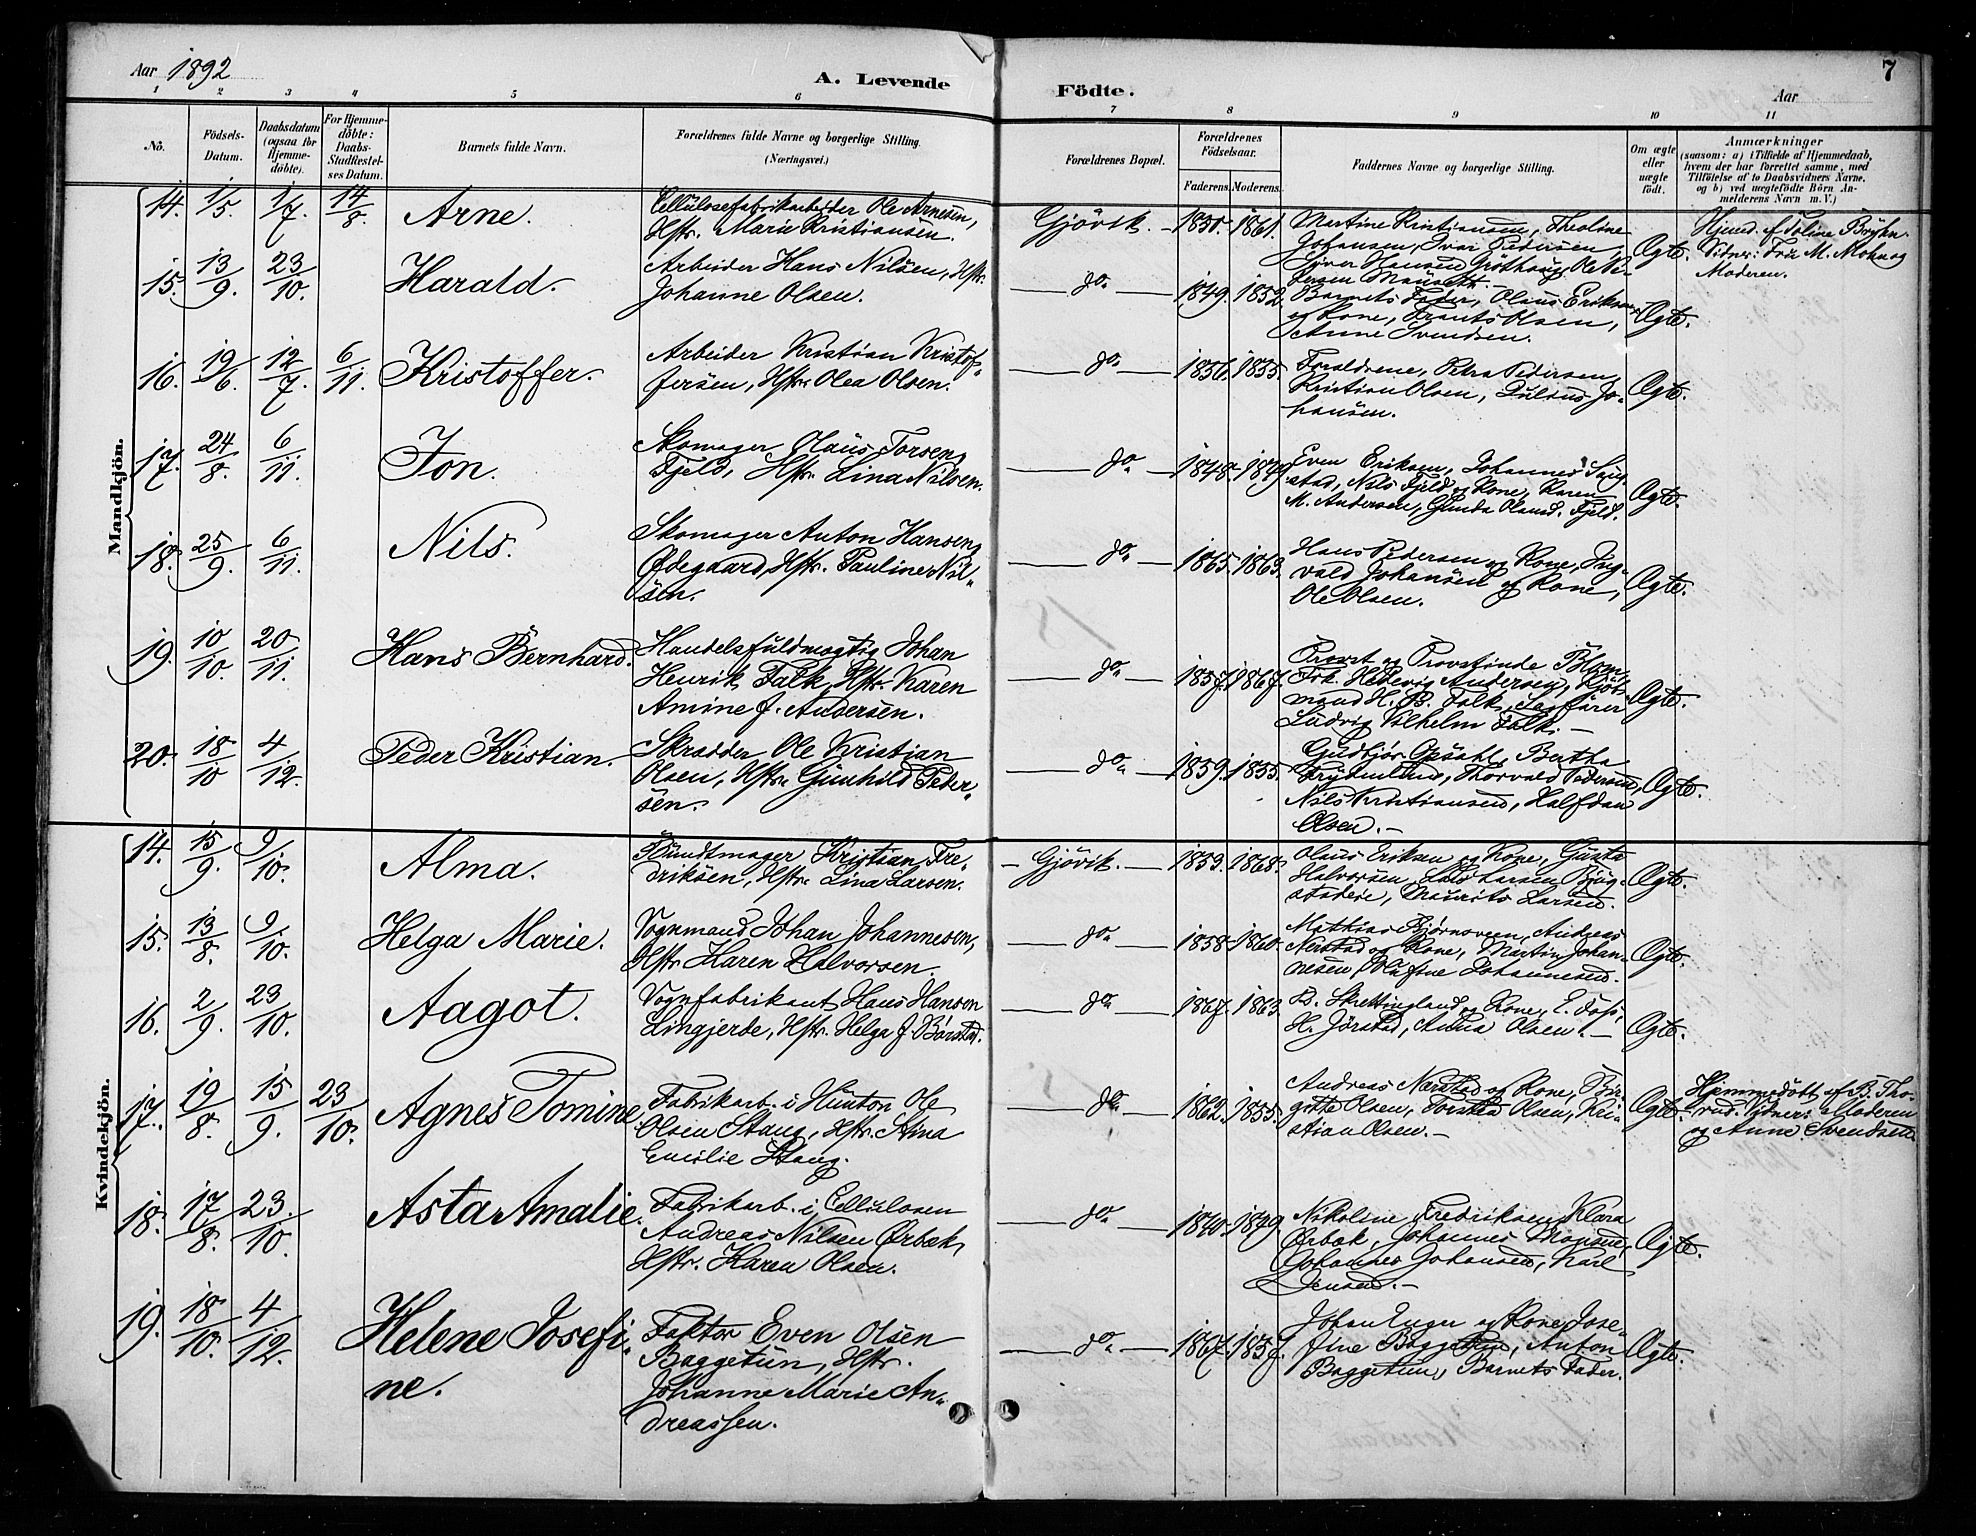 Aar 1892
A. Levende Födte.
Aar
7
1 2 3 4 5 6 7 8 9 10 11
Nö.
Födsels-
Datum.
Daabsdatum
(ogsaa for
Hjemme-
döbte).
For Hjemme-
döbte:
Daabs-
Stadfæstel-
ses Datum.
Barnets fulde Navn.
Forældrenes fulde Navne og borgerlige Stilling.
(Næringsvei.)
Forældrenes Bopæl.
Forældrenes
Födselsaar.
Faderens. Moderens.
Faddernes Navne og borgerlige Stilling.
Om ægte
eller
uægte
födt.
Anmærkninger
(saasom: a) i Tilfælde af Hjemmedaab,
hvem der har forrettet samme, med
Tilföielse af to Daabsvidners Navne,
og b) ved uægtefödte Börn An-
melderens Navn m. V.)
Mandkjön.
14. 1/5. 1/7. 14/8. Arne.
Cellulosefabrikarbeider Ole Arnesen,
Hstr. Marie Kristiansen.
Gjövik. 1850. 1861.
Martine Kristiansen, Theoline
Johansen, Ivar Pedersen,
Syver Hansen Gröthaug, Ole
Ægte.
Hjemd. af Toline Bryhn.
Vidner: Fru M. Mohn og
Moderen.
15. 13/9. 23/10. Harald.
Arbeider Hans Nilsen, Hstr.
Johanne Olsen.
do 1849. 1852.
Barnets Fader, Olaus Eriksen
og Kone, Frants Olsen,
Anne Svendsen.
Ægte.
16. 19/6. 12/7. 6/11. Kristoffer.
Arbeider Kristian Kristof-
fersen, Hstr. Olea Olsen.
do 1856. 1855.
Forældrene, Petra Pedersen,
Kristian Olsen, Julius Jo-
hansen.
Ægte.
17. 24/8. 6/11. Jon.
Skomager Olaus Torsen
Fjeld, Hstr. Lina Nilsen.
do 1848. 1849.
Even Eriksen, Johannes
stad, Nils Fjeld og Kone, Karen
M. Andersen, Gunda Olausd. Fjeld.
Ægte.
18. 25/9. 6/11. Nils.
Skomager Anton Hansen
Ödegaard, Hstr. Pauline Nil-
sen.
do 1865. 1863.
Hans Pedersen og Kone, Ing-
vald Johansen og Kone,
Ole Olsen.
Ægte.
19. 10/10. 20/11. Hans Bernhard.
Handelsfuldmægtig Johan
Henrik Falk, Hstr. Karen
Amine J. Andersen.
do 1857. 1867.
Provst og Provstinde Blom,
Frk. Hedevig Andersen, Kjöb-
mand H. B. Falk, Sagförer
Ludvig Vilhelm Falk. —
Ægte.
20. 18/10 4/12. Peder Kristian.
Skrædder Ole Kristian
Olsen, Hstr. Gunhild Peder-
sen.
do 1859. 1855.
Gudbjör Opsahl, Bertha
Frydenlund, Thorvald Pedersen,
Nils Kristiansen, Halfdan
Olsen. —
Ægte.
Kvindekjön.
14. 15/9. 9/10. Alma.
Bundtmager Kristian Fre-
driksen, Hstr. Lina Larsen.
Gjövik. 1859. 1868.
Olaus Eriksen og Kone, Gusta
Halvorsen, Lars Larsen
Maurits Larsen.
Ægte.
15. 13/8. 9/10. Helga Marie.
Vognmand Johan Johannesen,
Hstr. Karen Halvorsen.
do 1858. 1860.
Mathias Bjørnsveen, Andreas
Nærstad og Kone, Martin Johan-
nesen, Olufine Johannesen.
Ægte.
16. 2/9. 23/10. Aagot.
Vognfabrikant Hans Hansen
Lingjerde, Hstr. Helga J. Børstad.
do 1867. 1863.
D. Skrettingland og Kone, E. Foss,
H. Jörstad, Anna Olsen. —
Ægte.
17. 19/8. 15/9. 23/10. Agnes Tomine.
Fabrikarb. i Hunton Ole
Olsen Stang, Hstr. Stina
Emilie Stang.
do 1862. 1855.
Andreas Nærstad og Kone, Bir-
gitte Olsen, Torstea Olsen, Kri-
stian Olsen. —
Ægte.
Hjemmedöbt af B. Tho-
rud. Vidner: Moderen
og Anne Svendsen.
18. 17/8. 23/10. Asta Amalie.
Fabrikarb. i Cellulosen
Andreas Nilsen Ørbæk,
Hstr. Karen Olsen.
do 1840. 1849.
Nikoline Fredriksen, Klara
Ørbæk, Johannes
Johannes Johansen, Karl
Jensen. —
Ægte.
19. 18/10. 4/12. Helene Josefi-
ne.
Faktor Even Olsen
Baggetun, Hstr.
Johanne Marie An-
dreassen.
do 1867. 1857.
Johan Enger og Kone, Jose-
fine Baggetun, Anton
Baggetun, Barnets Fader.
Ægte.